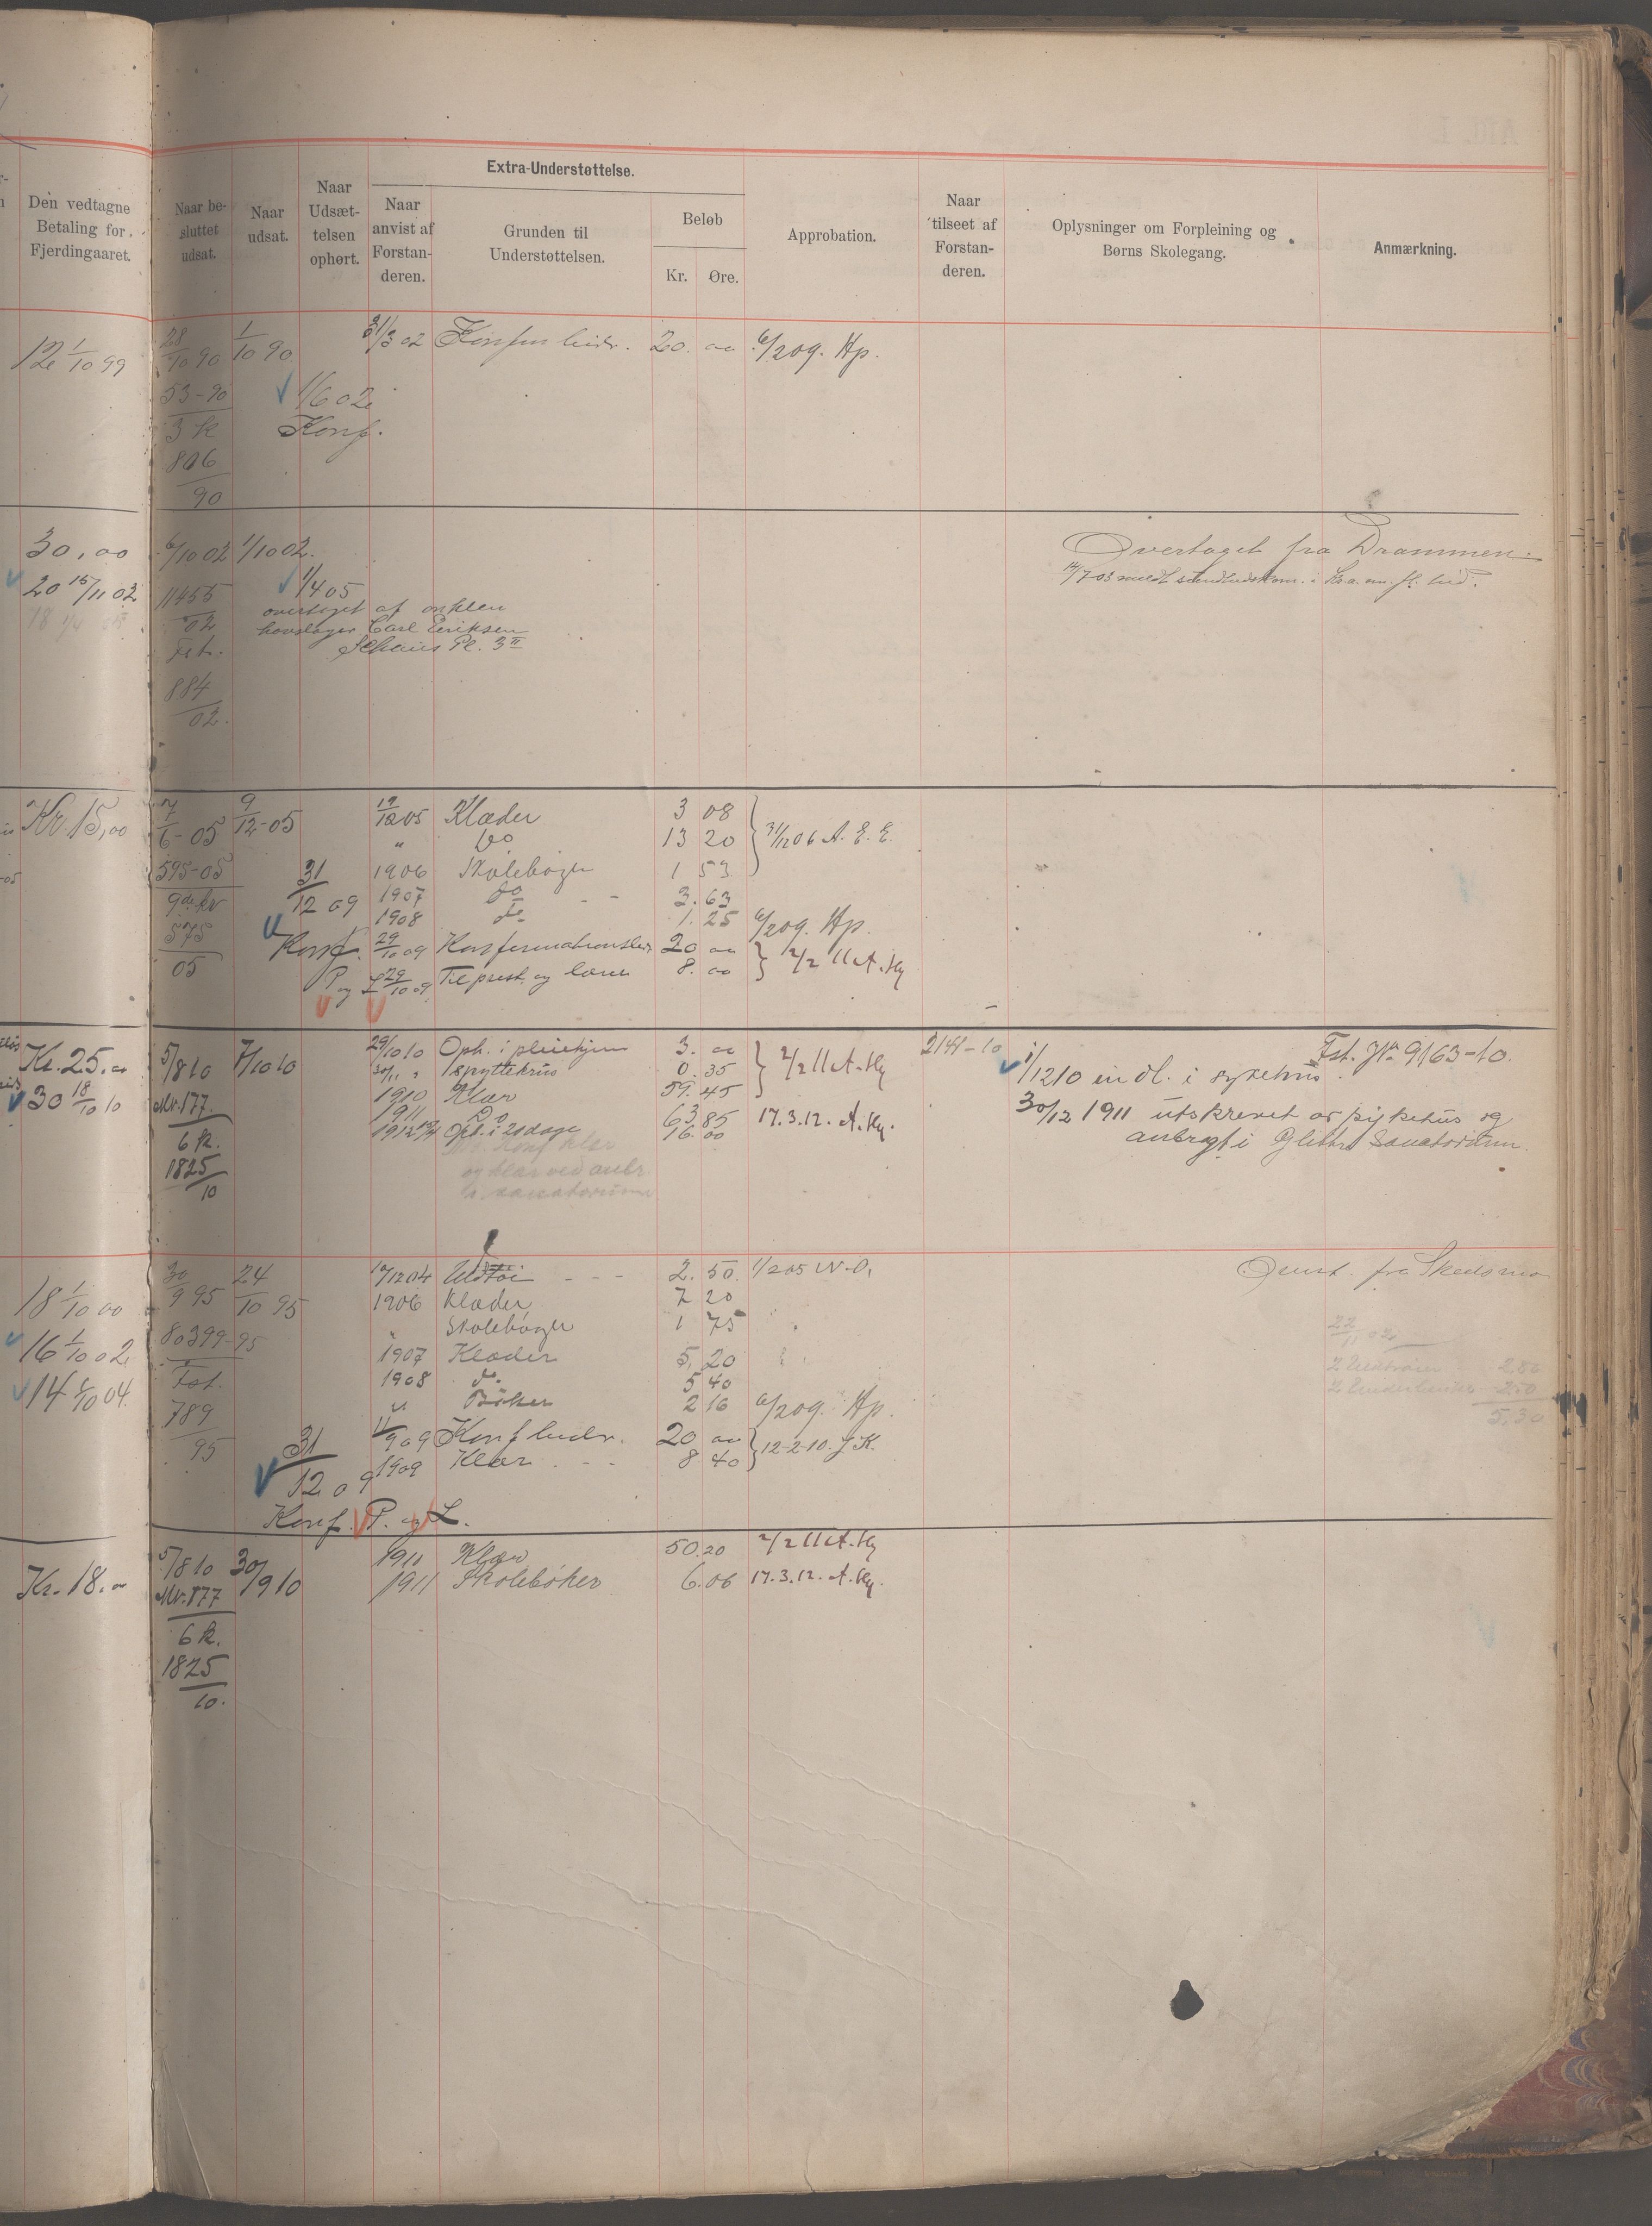 Den vedtagne
Betaling for
Fjerdingaaret.
Naar be-
sluttet
udsat.
Naar
udsat.
Naar
Udsæt-
telsen
ophørt.
Extra-Understøttelse.
Naar
anvist af
Forstan-
deren.
Grunden til
Understøttelsen.
Beløb
Kr. Øre.
Approbation.
Naar
tilseet af
Forstan-
deren.
Oplysninger om Forpleining og
Børns Skolegang.
Anmærkning.
12 1/10 99 28/10 90 1/10 90 31/3 02 20. 00 6/2 09. Hp.
53-90 1/6 02
3 k Konf.
806
90
30,00 6/10 02 1/10 02. Overtaget fra Drammen.
20 15/11 02 11455 1/4 05 14/7 03
02 overtaget af onklen
Fst. Carl Eriksen
Schaus Pl. 3 II
884
02.
Kr. 15,00 7/6-05 9/12-05 19/12 05 Klæder 3 08
" Do 13 20 31/12 06 A. E. E.
595-05 31 1906 Skolebøger 1 53
12 09 1907 do - - 3. 63
1908 do 1. 25 6/2 09. Hp.
575 Konf. 29/10 09 20 00
05 P og L 29/10 09 Til prest og lærer 8. 00 2/2 11 A. Hg
Kr. 25.00 5/8 10 7/10 10 29/10 10 Oph. i pleiehjem 3. 00 2141-10 1/12 10 indl. i sykehus. Fst. JNr. 9163-10.
30 18/10 10 Mr. 177. 30/11 " 1 spyttekrus 0. 35 2/2 11 A. Hg
1910 Klær 59. 45
6 k. 1911 Do 63. 85 17.3.12. A. Hg. 30/12 1911 utskrevet av sykehus og
1825 1912 Oph. i 21 dage 16. 00 anbragt i Glitre Sanatorium.
10
og klær ved anbr.
sanatorium
18 1/10 00 30/9 95 24/10 95 12 04 2. 50. 1/2 05 N.O.
1906 Klæder 7 20
Skolebøger 1 75
16 1/10 02 80399-95 1907 Klæder 5. 20
Fst. 1908 do. 5 40
14 1/10 04. 789 " Bøker 2 16 6/2 09. Hp.
95 31 11/9 09 Konf 20 00 12-2-10. J K.
12 09 1909 Klær - - 8 40
5.30
Konf. P. og L.
Kr. 18.00 5/8 10 30/9 10 1911 Klær 50.20 2/2 11 A. Hg
Mr. 177 1911 Skolebøker 6. 06 17.3.12. A. Hg.
6 k.
1825
10.